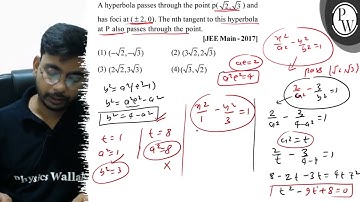 A hyperbola passes through the point p(√2, √3) and
has foci at (± 2, 0). The nth tangent to this hyperbola
at P also passes through the point.
[JEE Main - 2017]
(1) (-√2, -√3)
(2) (3√2, 2√3)
(3) (2√2, 3√3)
(4) (√3, √2)
ae = 2
a²e² = 4
b² = a²(e²-1)
b² = a²e² - a²
b² = 4 - a²
t = 1
a² = 1
b² = 3
t = 8
a² = 8
x
x²/1 - y²/3 = 1
x²/a² - y²/b² = 1
pass (√2, √3)
2/a² - 3/b² = 1
2/a² - 3/4-a² = 1
a² = t
2/t - 3/4-t = 1
8 - 2t - 3t = 4t - t²
t² - 9t + 8 = 0
Physics Wallah